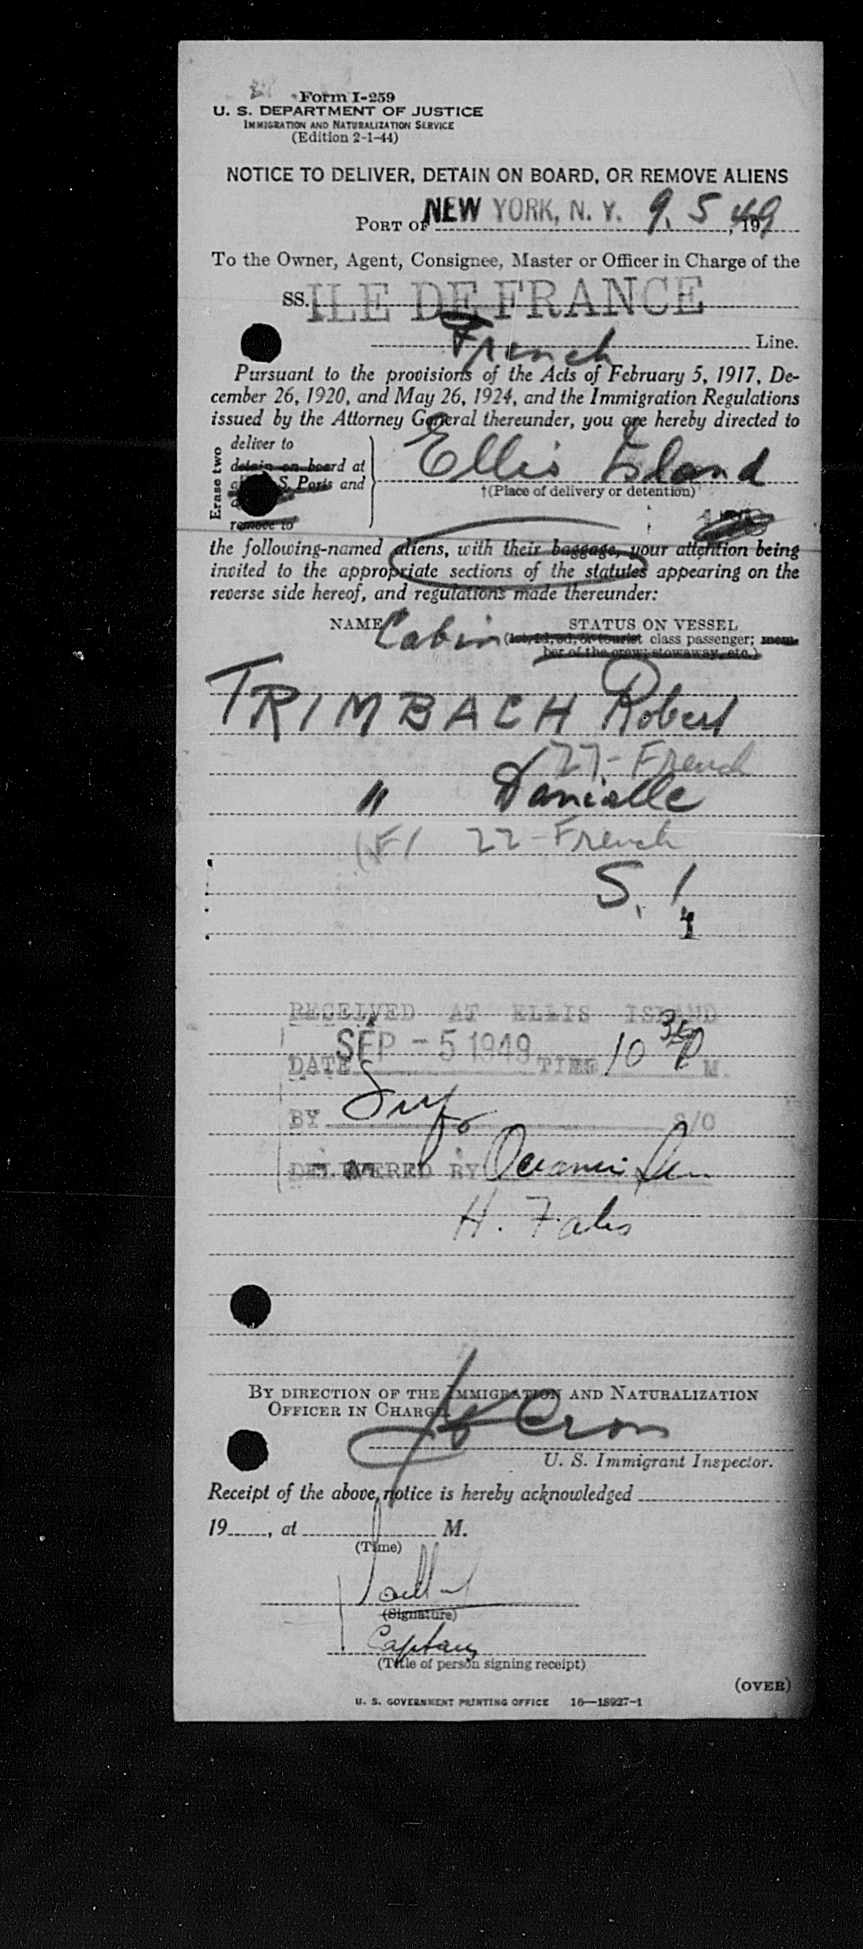 Form I-259
U. S. DEPARTMENT OF JUSTICE
IMMIGRATION AND NATURALIZATION SERVICE
(Edition 2-1-44)
NOTICE TO DELIVER, DETAIN ON BOARD, OR REMOVE ALIENS
PORT OF NEW YORK, N. Y. 9. 5, 1949
To the Owner, Agent, Consignee, Master or Officer in Charge of the
SS. ILE DE FRANCE
French Line.
Pursuant to the provisions of the Acts of February 5, 1917, De-
cember 26, 1920, and May 26, 1924, and the Immigration Regulations
issued by the Attorney General thereunder, you are hereby directed to
Erase two
deliver to
detain on board at
S. Ports and
remove to
Ellis Island
†(Place of delivery or detention)
the following-named aliens, with their baggage, your attention being
invited to the appropriate sections of the statutes appearing on the
reverse side hereof, and regulations made thereunder:
NAME Cabin STATUS ON VESSEL
(1st, 2d, 3d, or tourist class passenger; mem-
ber of the crew; stowaway, etc.)
TRIMBACH Robert
27-French
" Danielle
(F) 22-French
S. I.
RECEIVED AT ELLIS ISLAND
DATE SEP - 5 1949 TIME 10 35 P M.
BY S/O
DELIVERED BY
H.
BY DIRECTION OF THE IMMIGRATION AND NATURALIZATION
OFFICER IN CHARGE
U. S. Immigrant Inspector.
Receipt of the above notice is hereby acknowledged
19, at M.
(Time)
(Signature)
Captain
(Title of person signing receipt)
(OVER)
U. S. GOVERNMENT PRINTING OFFICE 16—18927-1